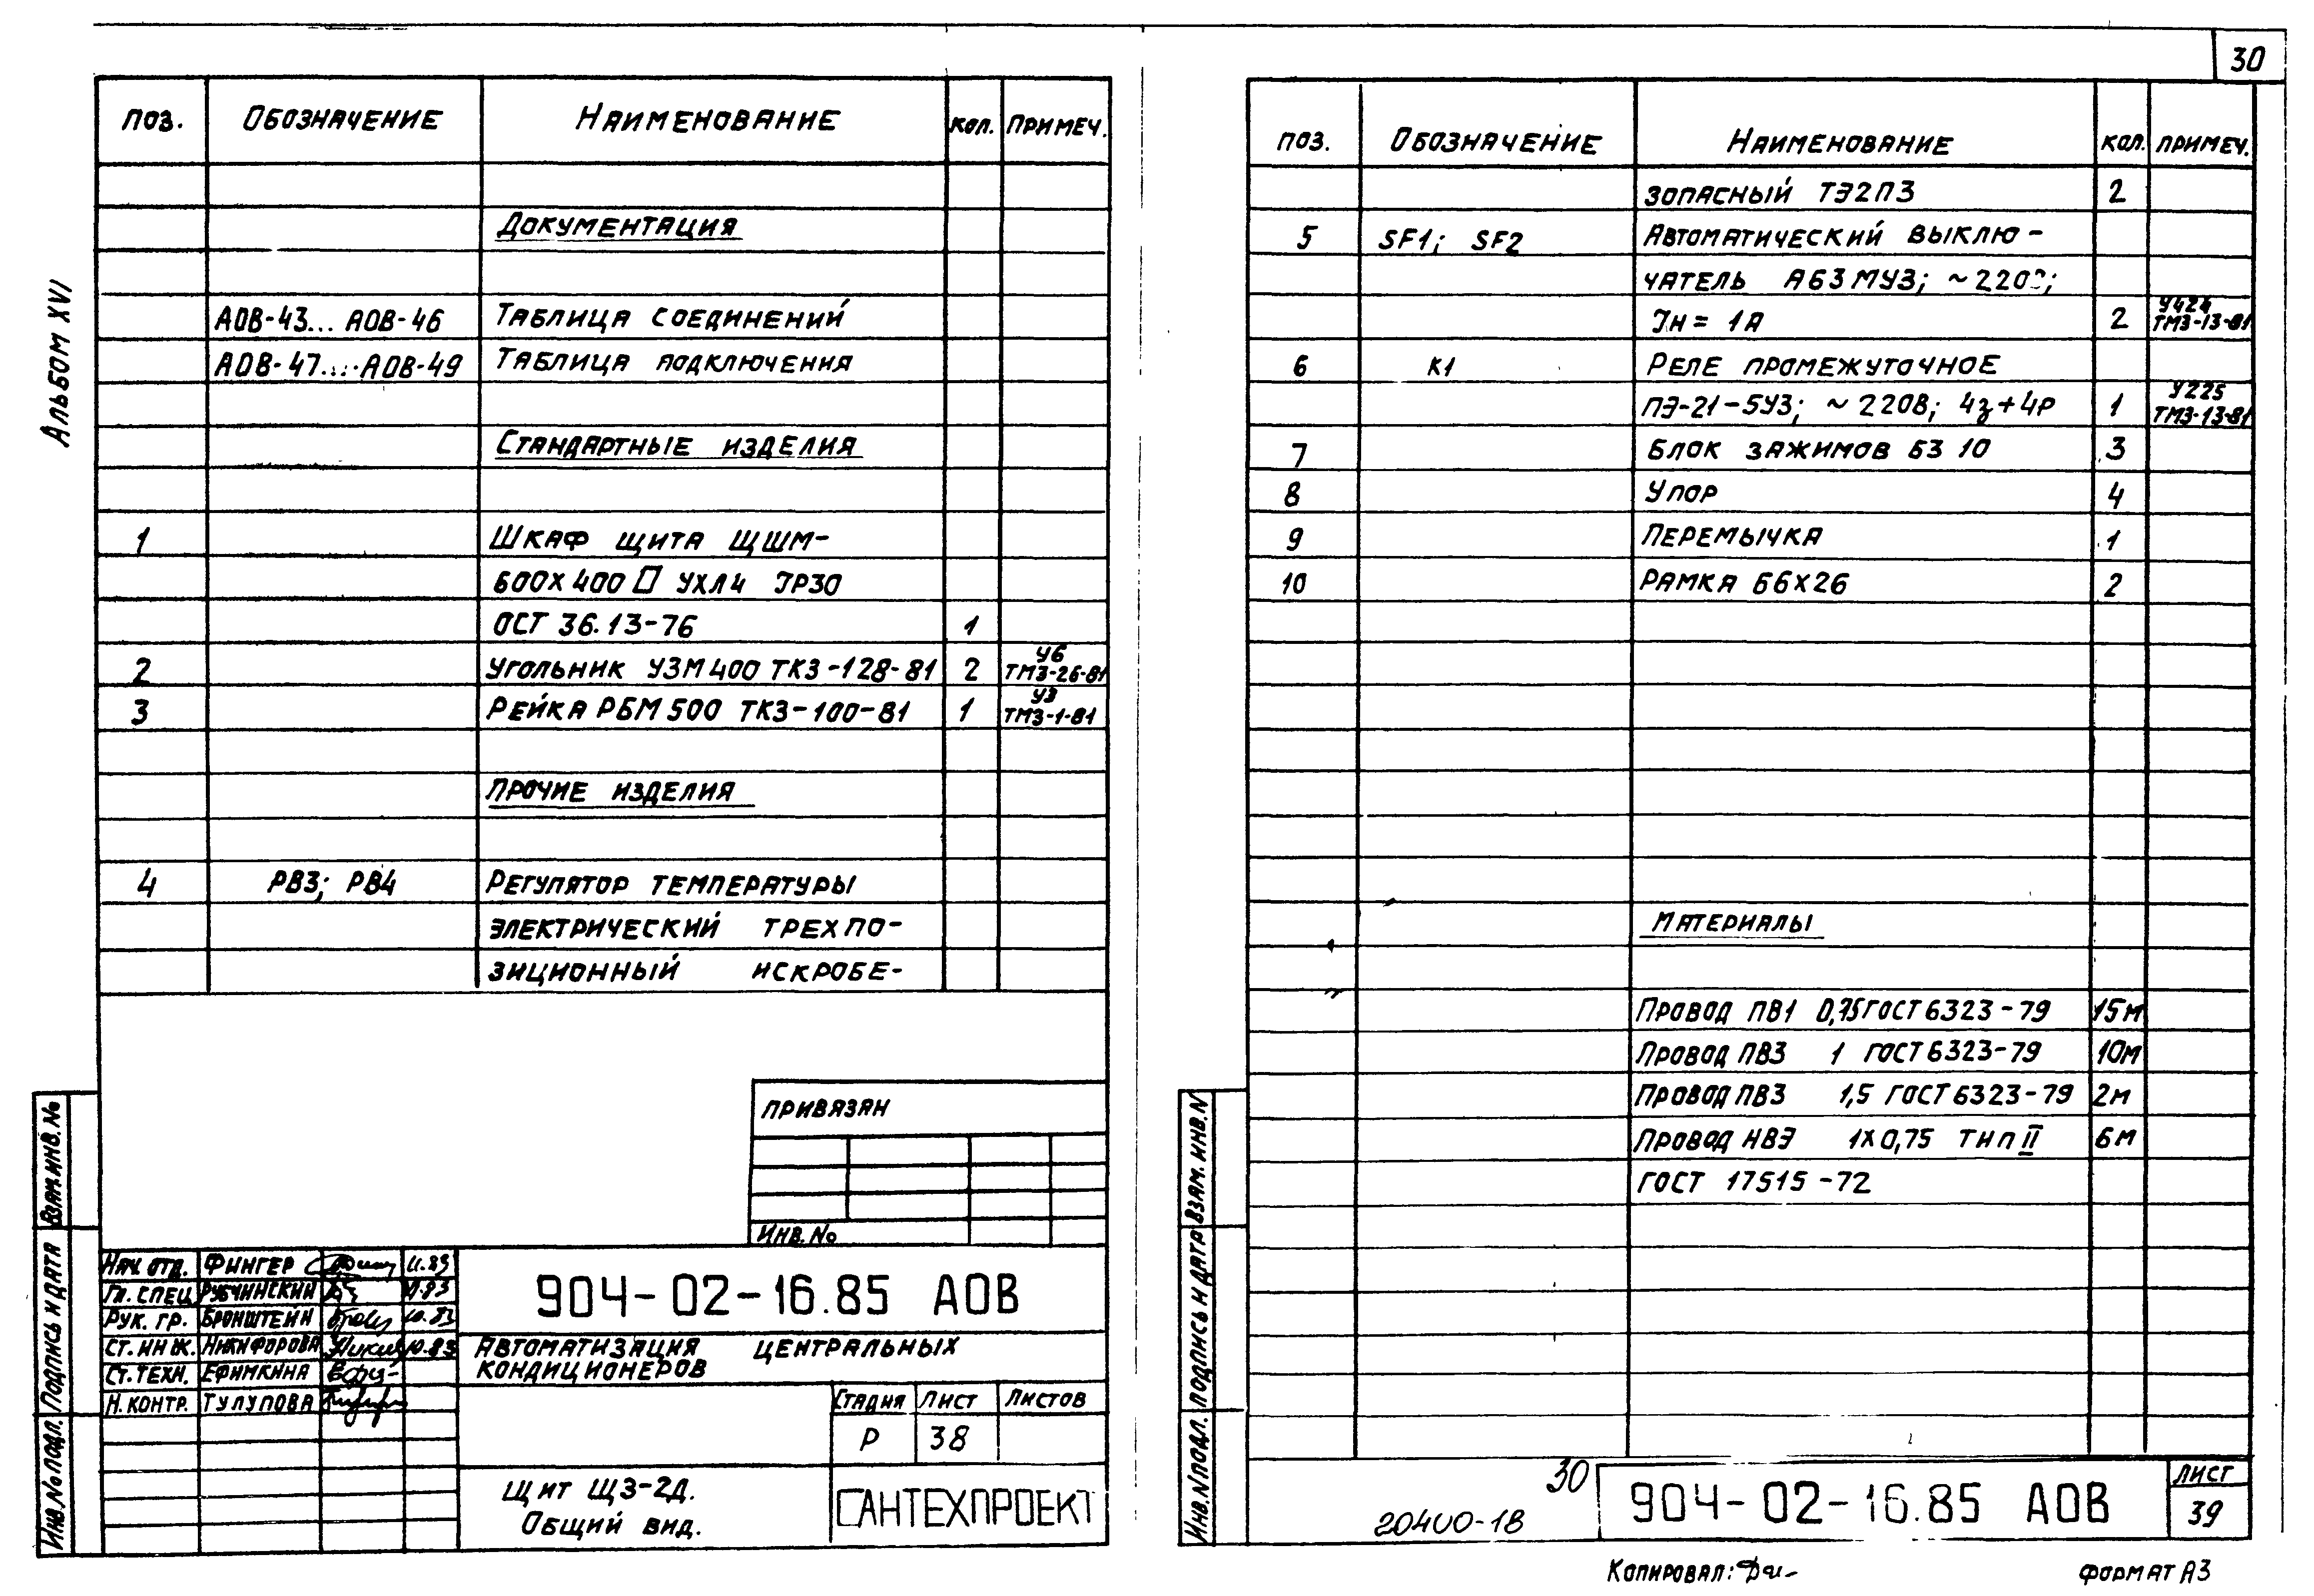 30
Альбом XVI
ПОЗ. ОБОЗНАЧЕНИЕ НАИМЕНОВАНИЕ КОЛ. ПРИМЕЧ.
ДОКУМЕНТАЦИЯ
АОВ-43... АОВ-46 ТАБЛИЦА СОЕДИНЕНИЙ
АОВ-47... АОВ-49 ТАБЛИЦА ПОДКЛЮЧЕНИЯ
СТАНДАРТНЫЕ ИЗДЕЛИЯ
1 ШКАФ ЩИТА ЩШМ-
600Х400 □ УХЛ4 IР30
ОСТ 36.13-76 1
2 УГОЛЬНИК УЗМ400 ТКЗ-128-81 2 У6 ТМЗ-26-81
3 РЕЙКА РБМ500 ТКЗ-100-81 1 У3 ТМЗ-1-81
ПРОЧИЕ ИЗДЕЛИЯ
4 РВ3; РВ4 РЕГУЛЯТОР ТЕМПЕРАТУРЫ
ЭЛЕКТРИЧЕСКИЙ ТРЕХПО-
ЗИЦИОННЫЙ ИСКРОБЕ-
ПРИВЯЗАН
ИНВ. №
НАЧ. ОТД. ФИНГЕР 11.83
ГЛ. СПЕЦ РУБЧИНСКИЙ 11.83
РУК. ГР. БРОНШТЕЙН 10.83
СТ. ИНЖ. НИКИФОРОВА 10.83
СТ. ТЕХН. ЕФИМКИНА
Н. КОНТР. ТУЛУПОВА
904-02-16.85 АОВ
АВТОМАТИЗАЦИЯ ЦЕНТРАЛЬНЫХ
КОНДИЦИОНЕРОВ
СТАДИЯ ЛИСТ ЛИСТОВ
Р 38
ЩИТ ЩЗ-2Д.
ОБЩИЙ ВИД.
САНТЕХПРОЕКТ
ИНВ. № ПОДЛ. ПОДПИСЬ И ДАТА ВЗАМ. ИНВ. №
ПОЗ. ОБОЗНАЧЕНИЕ НАИМЕНОВАНИЕ КОЛ. ПРИМЕЧ.
ЗОПАСНЫЙ ТЭ2П3 2
5 SF1; SF2 АВТОМАТИЧЕСКИЙ ВЫКЛЮ-
ЧАТЕЛЬ А63МУЗ; ~220В;
Iн = 1А 2 У424 ТМЗ-13-81
6 К1 РЕЛЕ ПРОМЕЖУТОЧНОЕ
ПЭ-21-5УЗ; ~220В; 4з+4р 1 У225 ТМЗ-13-81
7 БЛОК ЗАЖИМОВ БЗ 10 3
8 УПОР 4
9 ПЕРЕМЫЧКА 1
10 РАМКА 66Х26 2
МАТЕРИАЛЫ
ПРОВОД ПВ1 0,75 ГОСТ 6323-79 15м
ПРОВОД ПВ3 1 ГОСТ 6323-79 10м
ПРОВОД ПВ3 1,5 ГОСТ 6323-79 2м
ПРОВОД НВЭ 1Х0,75 ТИП II 6м
ГОСТ 17515-72
ИНВ. N ПОДЛ. ПОДПИСЬ И ДАТА ВЗАМ. ИНВ. N
30
20400-18
904-02-16.85 АОВ
ЛИСТ
39
КОПИРОВАЛ:
ФОРМАТ А3